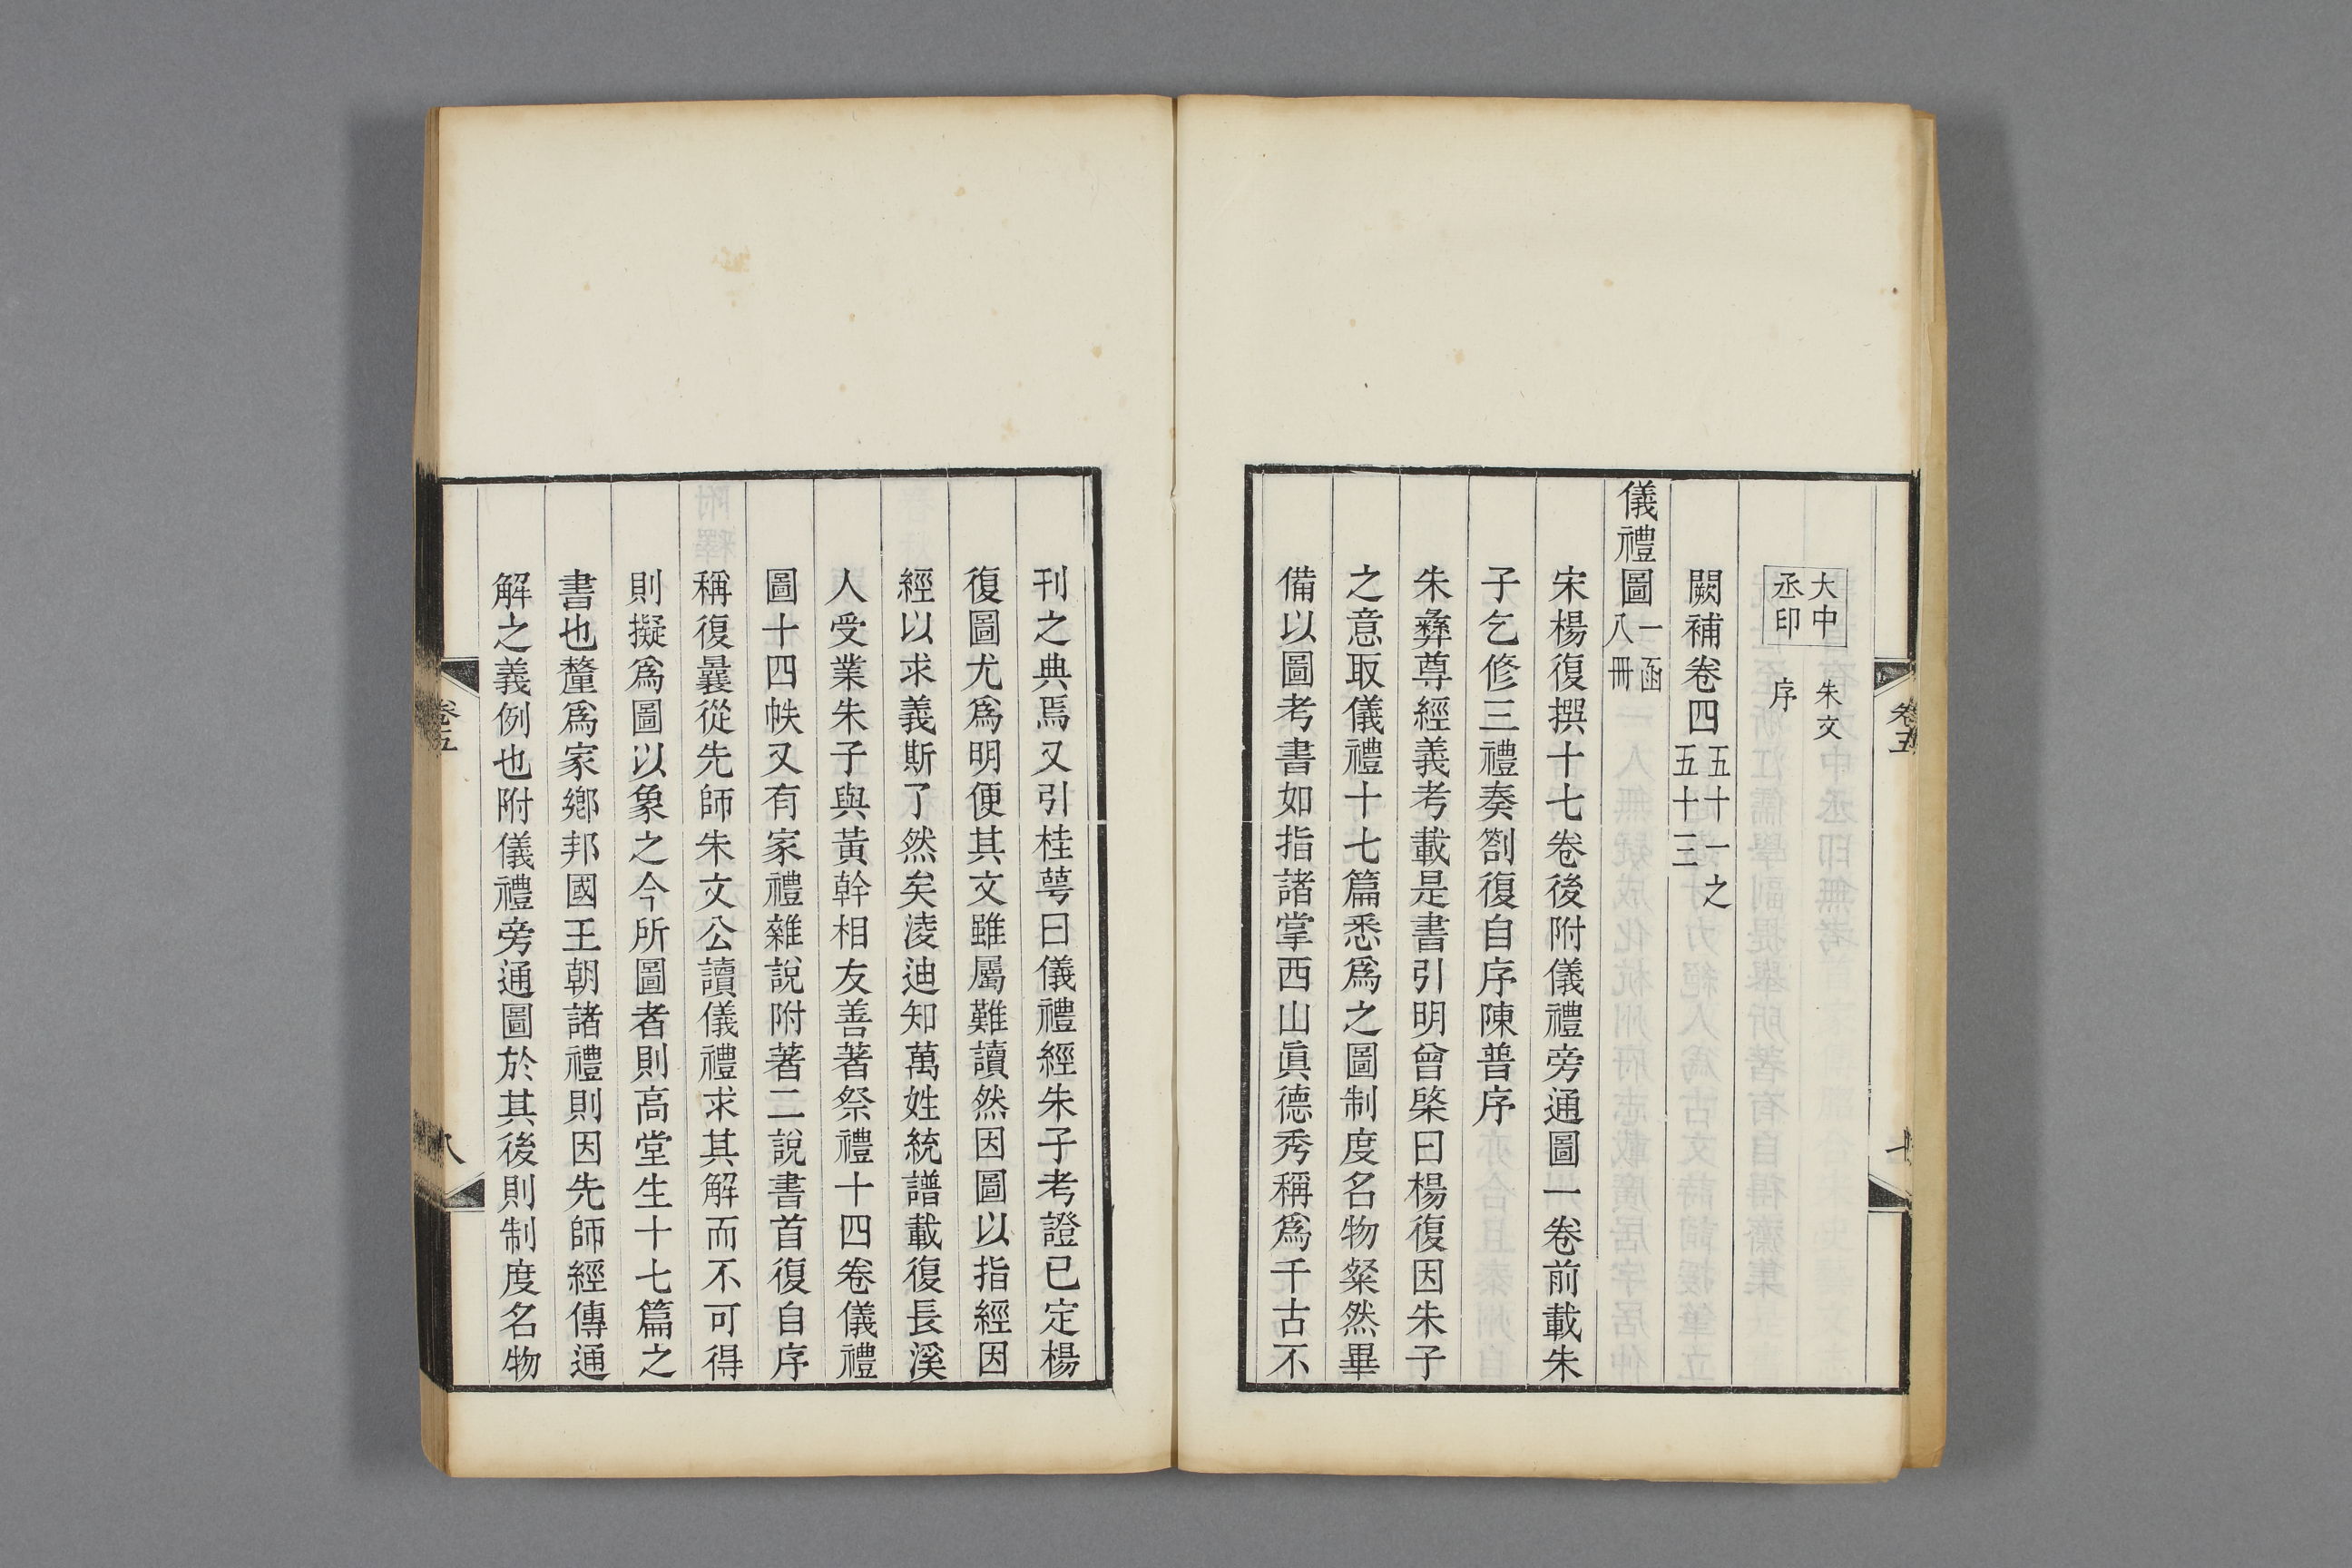 卷五
七
大中
丞印
朱文
序
闕補卷四五十一之
五十三
儀禮圖一函
八冊
宋楊復撰十七卷後附儀禮旁通圖一卷前載朱
子乞修三禮奏劄復自序陳普序
朱彝尊經義考載是書引明曾棨曰楊復因朱子
之意取儀禮十七篇悉爲之圖制度名物粲然畢
備以圖考書如指諸掌西山眞德秀稱爲千古不
刊之典焉又引桂萼曰儀禮經朱子考證已定楊
復圖尤爲明便其文雖屬難讀然因圖以指經因
經以求義斯了然矣淩迪知萬姓統譜載復長溪
人受業朱子與黃幹相友善著祭禮十四卷儀禮
圖十四帙又有家禮雜說附著二說書首復自序
稱復曩從先師朱文公讀儀禮求其解而不可得
則擬爲圖以象之今所圖者則高堂生十七篇之
書也釐爲家鄉邦國王朝諸禮則因先師經傳通
解之義例也附儀禮旁通圖於其後則制度名物
卷五
八